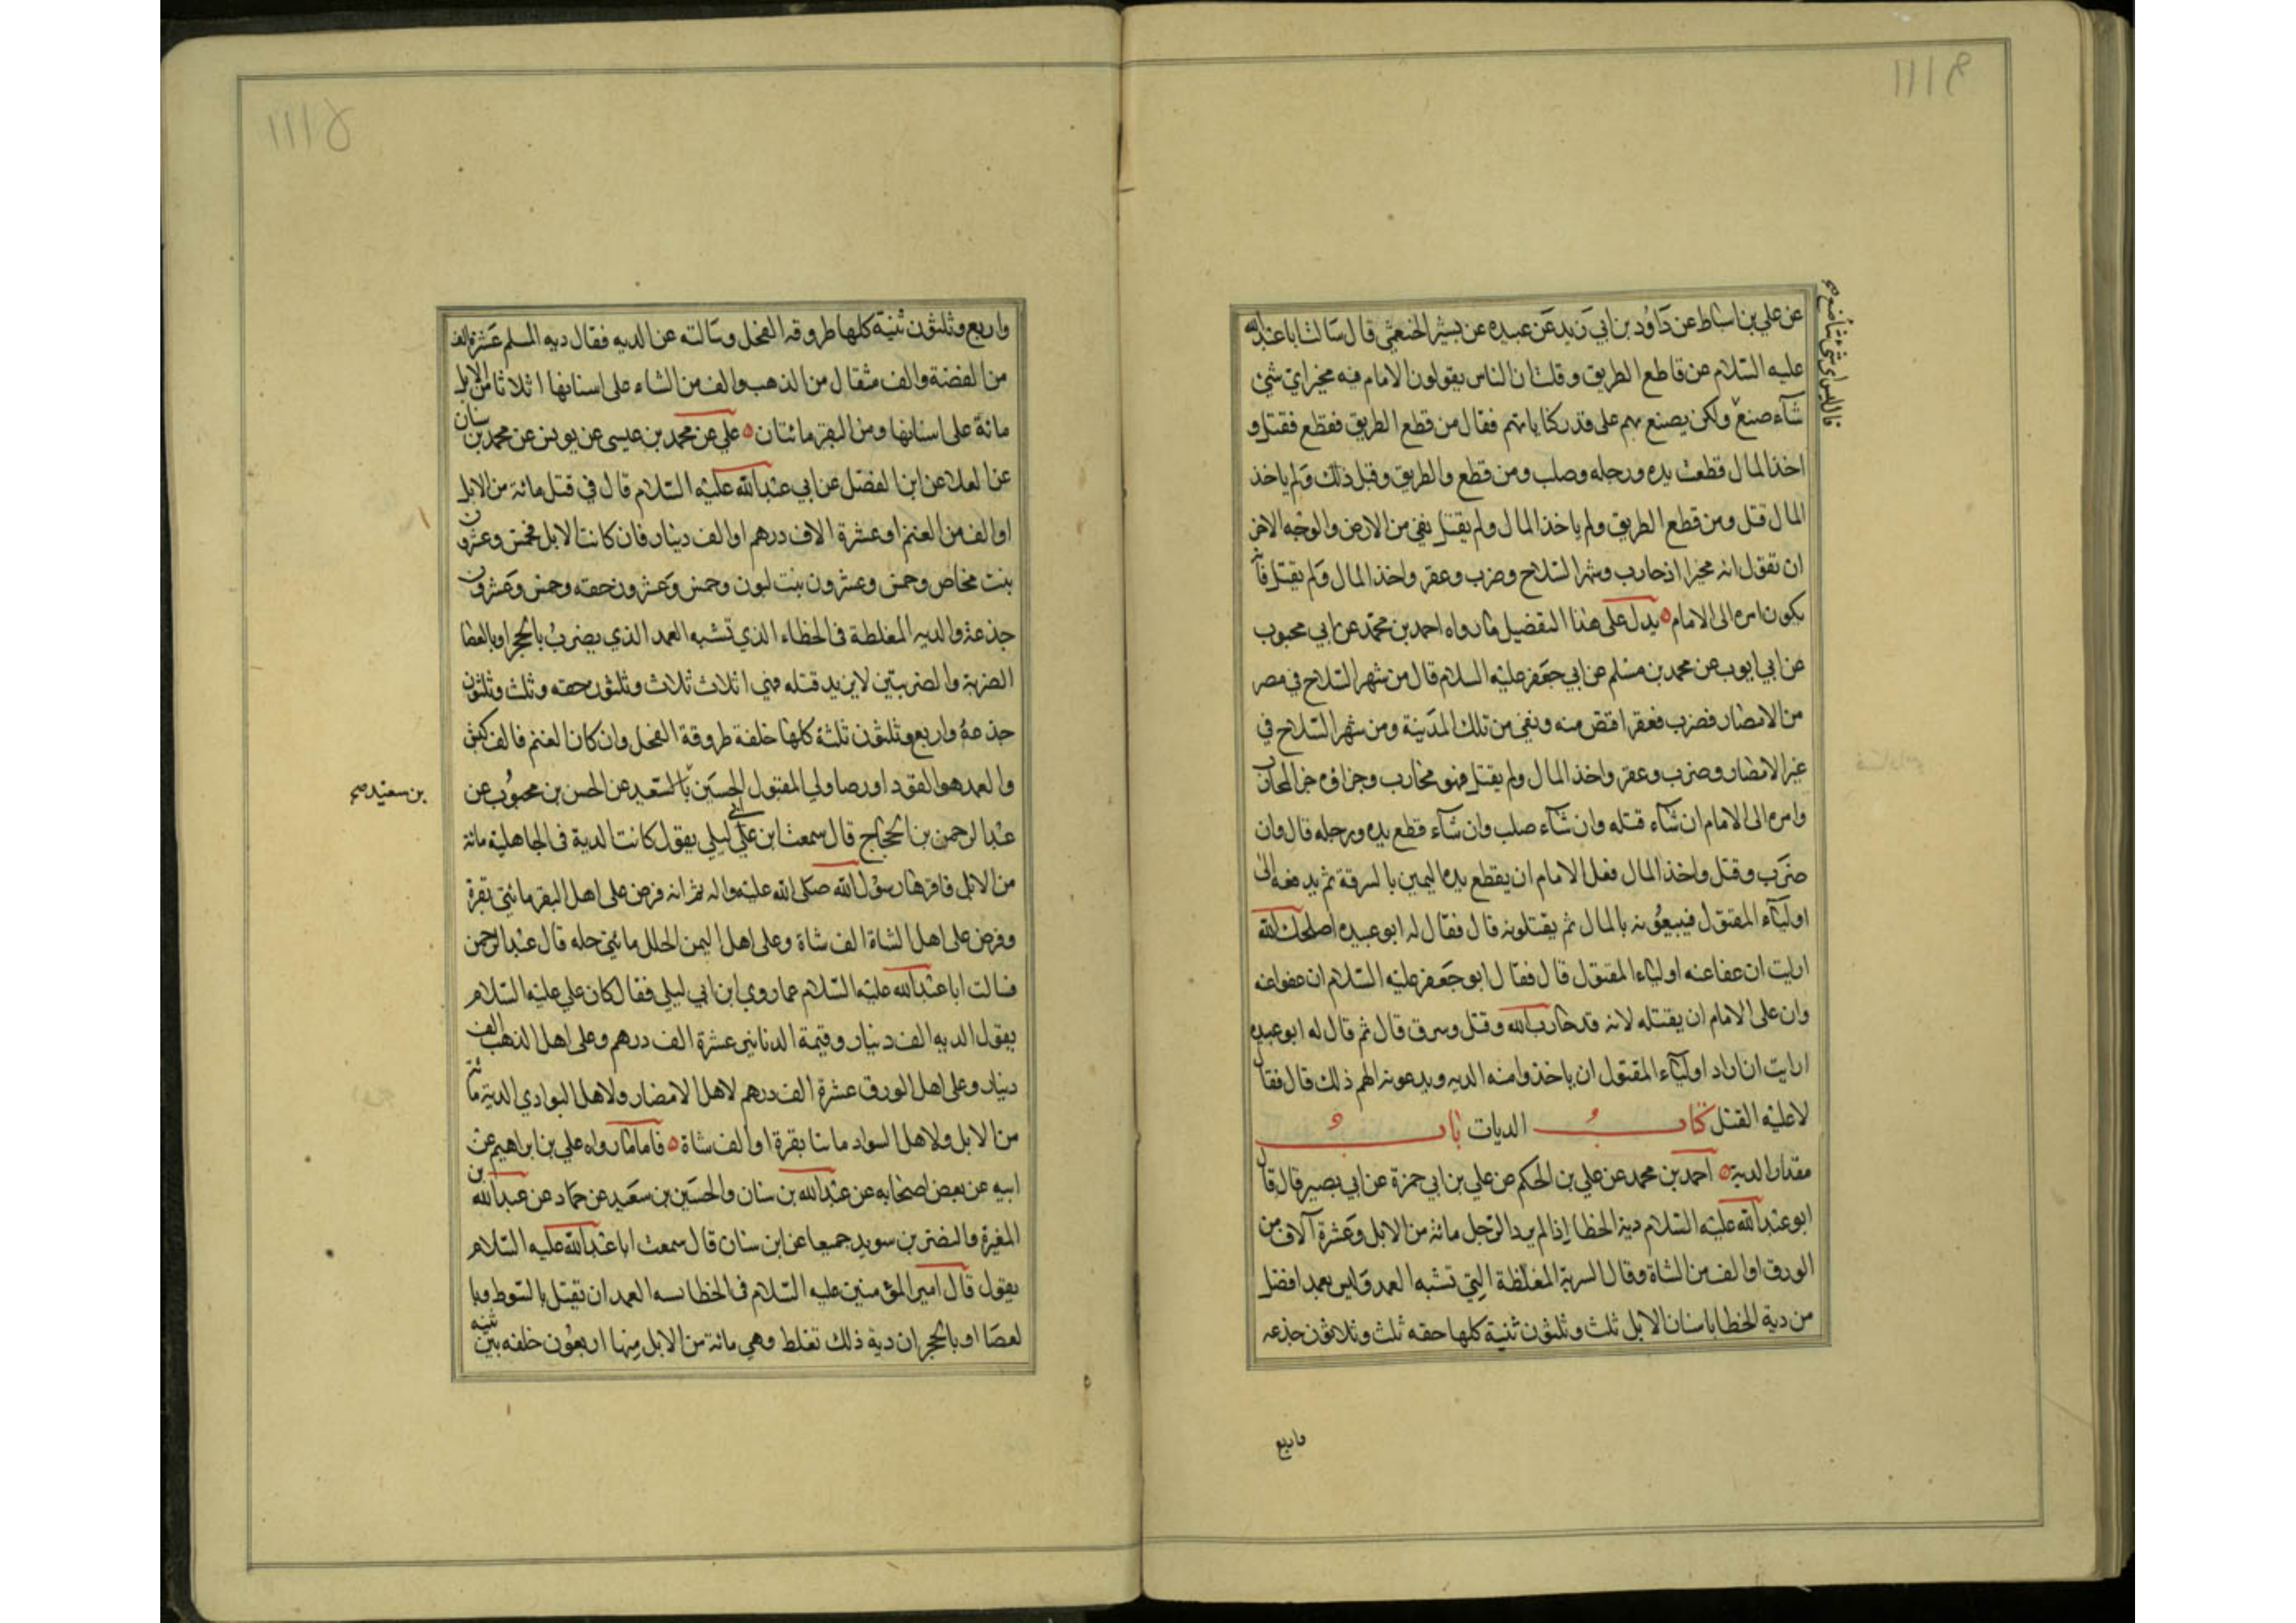 عن علي بن اسباط عن داود بن ابي زيد عن عبيده عن بشير الخثعمي قال سالت ابا عبد الله
عليه السلام عن قاطع الطريق وقلت ان الناس يقولون الامام فيه مخير اي شئ
شاء صنع ولكن يصنع بهم على قدر كناياتهم فقال من قطع الطريق فقطع فقتل و
اخذ المال قطعت يده ورجله وصلب ومن قطع والطريق وقبل ذلك ولم ياخذ
المال قتل ومن قطع الطريق ولم ياخذ المال ولم يقتل نفي من الارض والوجه الاخر
ان تقول انه مخير اذ حارب وشهر السلاح وضرب وعقر واخذ المال ولم يقتل فانه
يكون امره الى الامام ه يدل على هذا التفضيل ما رواه احمد بن محمد عن ابي محبوب
عن ابي ايوب عن محمد بن مسلم عن ابي جعفر عليه السلام قال من شهر السلاح في مصر
من الامصار فضرب فعقر اقتص منه ونفي من تلك المدينة ومن شهر السلاح في
غير الامصار وضرب وعقر واخذ المال ولم يقتل فهو محارب وجزاؤه جزا المحارب
وامره الى الامام ان شاء قتله وان شاء صلب وان شاء قطع يده ورجله قال وان
ضرب وقتل واخذ المال فعل الامام ان يقطع يده اليمين بالسرقة ثم يدفعه الى
اولياء المقتول فيبيعونه بالمال ثم يقتلونه قال فقال له ابو عبيده اصلحك الله
ارايت ان عفا عنه اولياء المقتول قال فقال ابو جعفر عليه السلام ان عفوا عنه
وان على الامام ان يقتله لانه قد حارب الله وقتل وسرق قال ثم قال له ابو عبيده
ارايت ان اراد اولياء المقتول ان ياخذوا منه الديه ويدعونه الهم ذلك قال فقال
لا عليه القتل كتاب الديات باب
مقدار الدية ه احمد بن محمد عن علي بن الحكم عن علي بن ابي حمزة عن ابي بصير قال قال
ابو عبد الله عليه السلام دية الخطا اذا لم يرد الرجل مائة من الابل وعشرة آلاف من
الورق او الف من الشاة وقال السرية المغلظة التي تشبه العمد وليس بعمد افضل
من دية الخطا باسنان الابل ثلث وثلثون ثنية كلها حقه ثلث وثلاثون جذعه
واربع
واربع وثلثون ثنية كلها طروقه الفحل وسالته عن الديه فقال ديه المسلم عشرة الف
من الفضة والف مثقال من الذهب والف من الشاء على اسنانها اثلاثا من الابل
مائة على اسنانها ومن البقر مائتان ه علي عن محمد بن عيسى عن يونس عن محمد بن سنان
عن العلا عن ابن الفضل عن ابي عبد الله عليه السلام قال في قتل مائة من الابل
او الف من الغنم او عشرة الاف درهم او الف دينار فان كانت الابل فخمس وعشرون
بنت مخاض وخمس وعشرون بنت لبون وخمس وعشرون حقه وخمس وعشرون
جذعة والديه المغلظة في الخطاء الذي تشبه العمد الذي يضرب بالحجر او بالعصا
الضربة والضربتين لا يريد قتله فهي اثلاث ثلاث وثلثون حقه وثلث وثلثون
جذعة واربع وثلثون ثلثة كلها خلفة طروقة الفحل وان كان الغنم فالف كبش
والعمد هو القود او رضا ولي المقتول الحسين بالسعيد عن الحسن بن محبوب عن
بن سعيد صح
عبد الرحمن بن الحجاج قال سمعت ابن علي ابي ليلى يقول كانت الدية في الجاهلية مائة
من الابل فاقرها رسول الله صلى الله عليه واله ثم انه فرض على اهل البقر مائتي بقرة
وفرض على اهل الشاة الف شاة وعلى اهل اليمن الحلل مائتي حله قال عبد الرحمن
فسالت ابا عبد الله عليه السلام عما روي ابن ابي ليلى فقال كان علي عليه السلام
يقول الديه الف دينار وقيمة الدنانير عشرة الف درهم وعلى اهل الذهب الف
دينار وعلى اهل الورق عشرة الف درهم لاهل الامصار ولاهل البوادي الدية مائة
من الابل ولاهل السواد ماتا بقرة او الف شاة ه فاما ما رواه علي بن ابراهيم عن
ابيه عن بعض اصحابه عن عبد الله بن سنان والحسين بن سعيد عن حماد عن عبد الله بن
المغيرة والنضر بن سويد جميعا عن ابن سنان قال سمعت ابا عبد الله عليه السلام
يقول قال امير المؤمنين عليه السلام في الخطا سبه العمد ان تقتل بالسوط وبا
لعصا او بالحجر ان دية ذلك تغلظ وهي مائة من الابل منها اربعون خلفه بين ثنيه